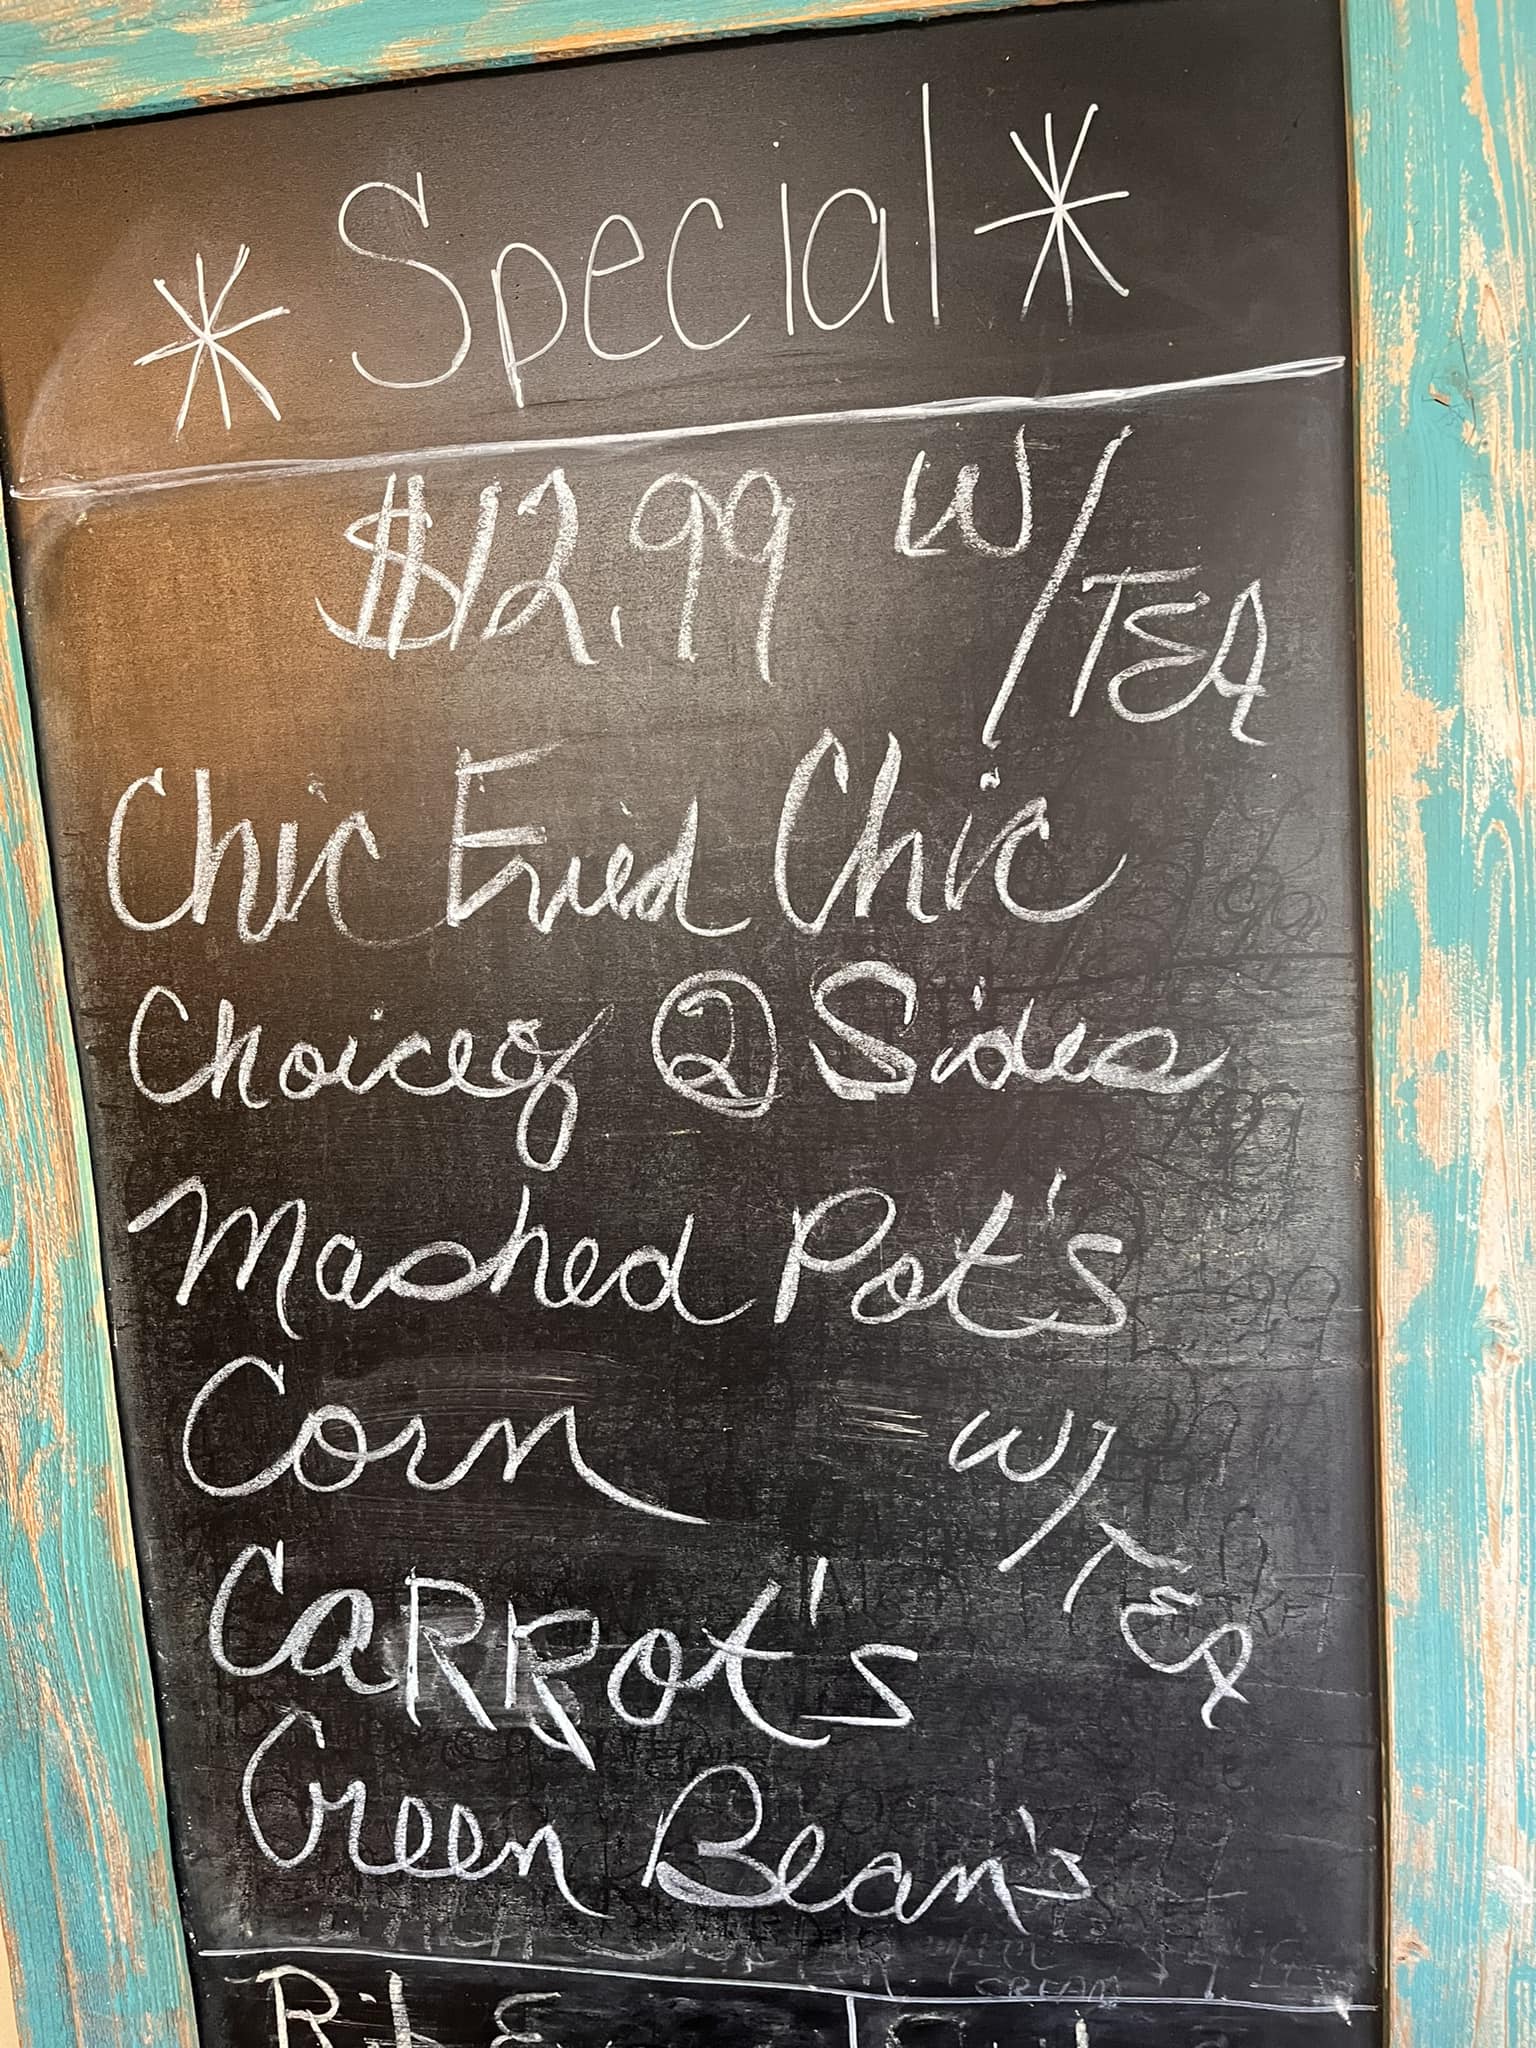 * Special *
$12.99 W/TEA
Chic Fried Chic
Choice of 2 Sides
Mashed Pot's
Corn W/TEA
CaRRot's
Green Bean's